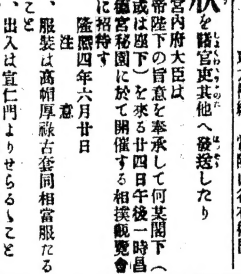 状を諸官吏其他へ發送したり
宮内府大臣は
帝陛下の旨意を奉承して何某閣下（
或は座下）を來る廿四日午後一時昌
德宮秘園に於て開催する相撲觀覽會
に招待す
隆熙四年六月廿日
注意
、服裝は高帽厚祿古套同相當服たる
こと
、出入は宣仁門よりせらるゝこと